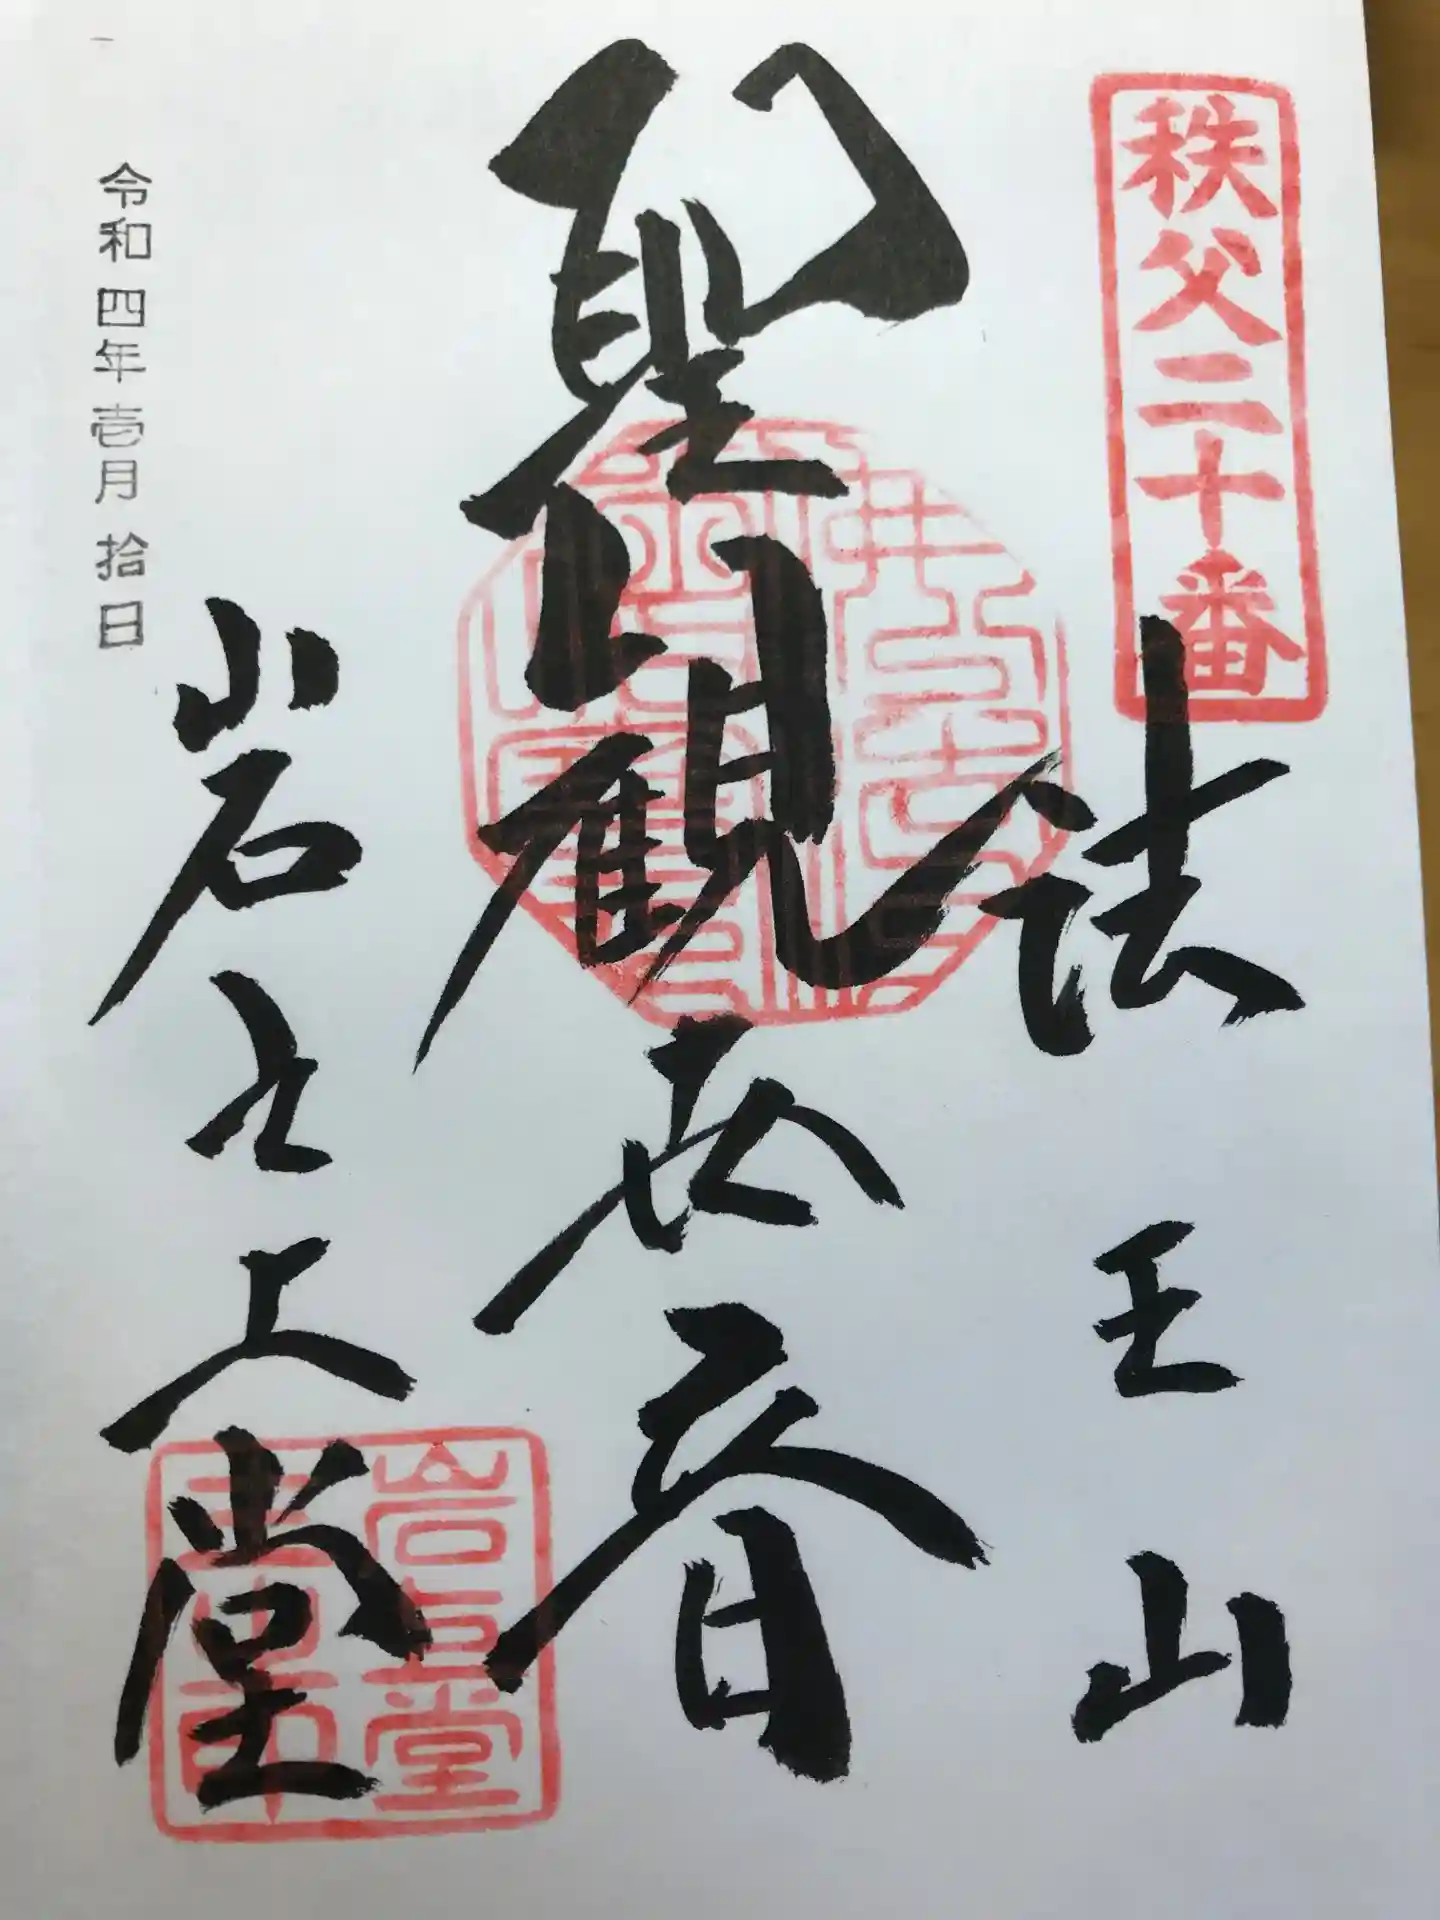 秩父二十番
法王山
聖観世音
岩之上堂
令和四年壱月拾日
岩上堂